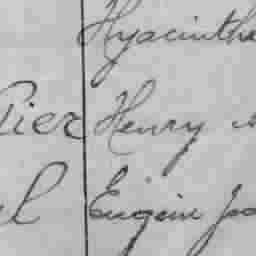 Hyacinthe
tier Henry
l Eugène Jos